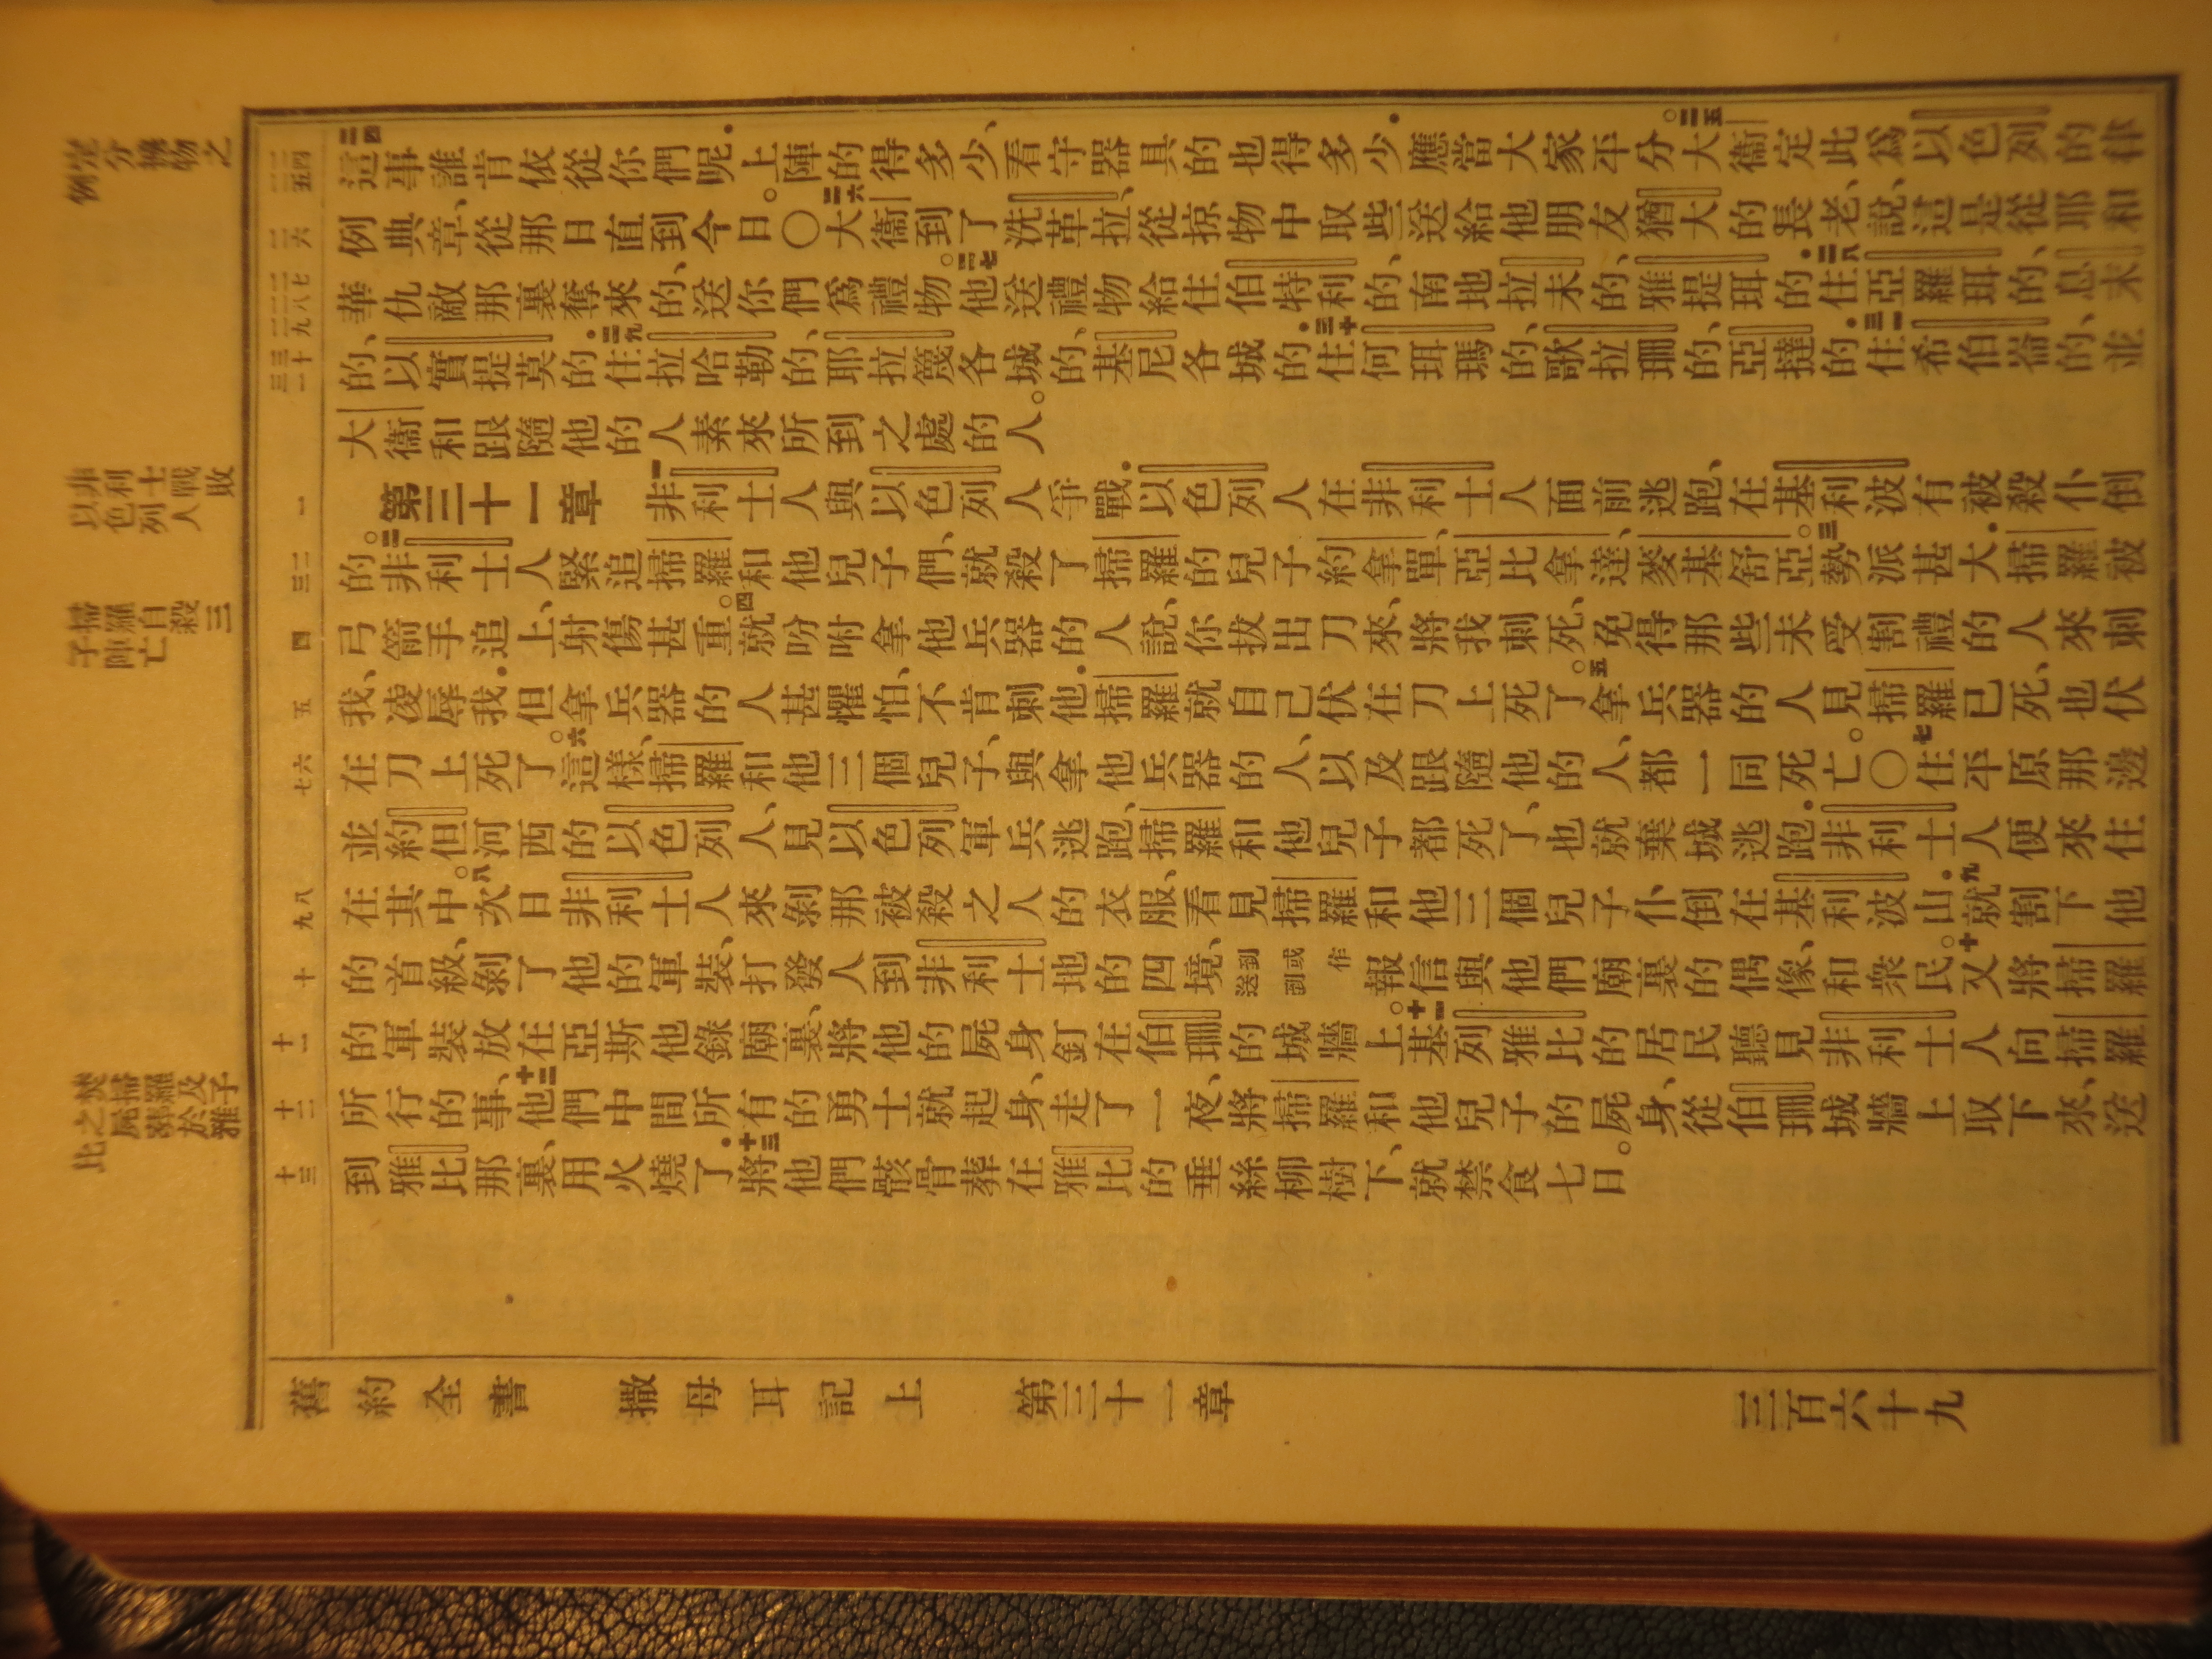 定分擄物之例
非利士戰敗以色列人
掃羅自殺三子陣亡
焚掃羅及子之屍葬於雅比
四 五
六
七 八 九
十 一
一
二 三
四
五
六 七
八 九
十
十一
十二
十三
二四這事誰肯依從你們呢．上陣的得多少、看守器具的也得多少．應當大家平分。二五大衞定此爲以色列的律
例典章、從那日直到今日。〇二六大衞到了洗革拉、從掠物中取些送給他朋友猶大的長老、說、這是從耶和
華仇敵那裏奪來的、送你們爲禮物。二七他送禮物給住伯特利的、南地拉末的、雅提珥的．二八住亞羅珥的、息末
的、以實提莫的．二九住拉哈勒的、耶拉篾各城的、基尼各城的．三十住何珥瑪的、歌拉珊的、亞撻的．三一住希伯崙的、並
大衞和跟隨他的人素來所到之處的人。
第三十一章 一非利士人與以色列人爭戰．以色列人在非利士人面前逃跑、在基利波有被殺仆倒
的。二非利士人緊追掃羅和他兒子們、就殺了掃羅的兒子約拿單、亞比拿達、麥基舒亞。三勢派甚大．掃羅被
弓箭手追上、射傷甚重。四就吩咐拿他兵器的人說、你拔出刀來、將我刺死、免得那些未受割禮的人來刺
我、凌辱我．但拿兵器的人甚懼怕、不肯刺他．掃羅就自己伏在刀上死了。五拿兵器的人見掃羅已死、也伏
在刀上死了。六這樣、掃羅和他三個兒子、與拿他兵器的人、以及跟隨他的人、都一同死亡。〇七住平原那邊
並約但河西的以色列人、見以色列軍兵逃跑、掃羅和他兒子都死了、也就棄城逃跑．非利士人便來住
在其中。八次日非利士人來剝那被殺之人的衣服、看見掃羅和他三個兒子仆倒在基利波山．九就割下他
的首級、剝了他的軍裝、打發人到非利士地的四境、到或作送到報信與他們廟裏的偶像、和衆民。十又將掃羅
的軍裝放在亞斯他錄廟裏、將他的屍身釘在伯珊的城牆上。十一基列雅比的居民聽見非利士人向掃羅
所行的事、十二他們中間所有的勇士就起身、走了一夜、將掃羅和他兒子的屍身、從伯珊城牆上取下來、送
到雅比那裏、用火燒了．十三將他們骸骨葬在雅比的垂絲柳樹下、就禁食七日。
舊約全書 撒母耳記上 第三十一章 三百六十九